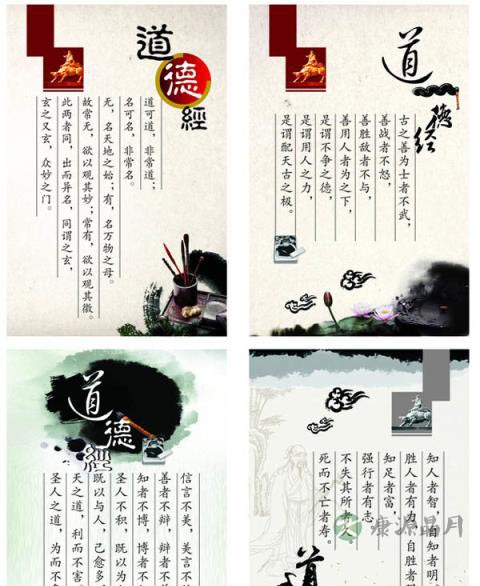 道德經
道可道，非常道；
名可名，非常名。
无，名天地之始；有，名万物之母。
故常无，欲以观其妙；常有，欲以观其徼。
此两者同，出而异名，同谓之玄，
玄之又玄，众妙之门。
道德经
古之善为士者不武，
善战者不怒，
善胜敌者不与，
善用人者为之下，
是谓不争之德，
是谓用人之力，
是谓配天古之极。
道德經
信言不美，美言不
善者不辩，辩者不
知者不博，博者不
圣人不积，既以为
既以与人，己愈多
天之道，利而不害
圣人之道，为而不
知人者智，自知者明
胜人者有力，自胜者
知足者富，
强行者有志
不失其所者
死而不亡者寿。
道
康源晶月